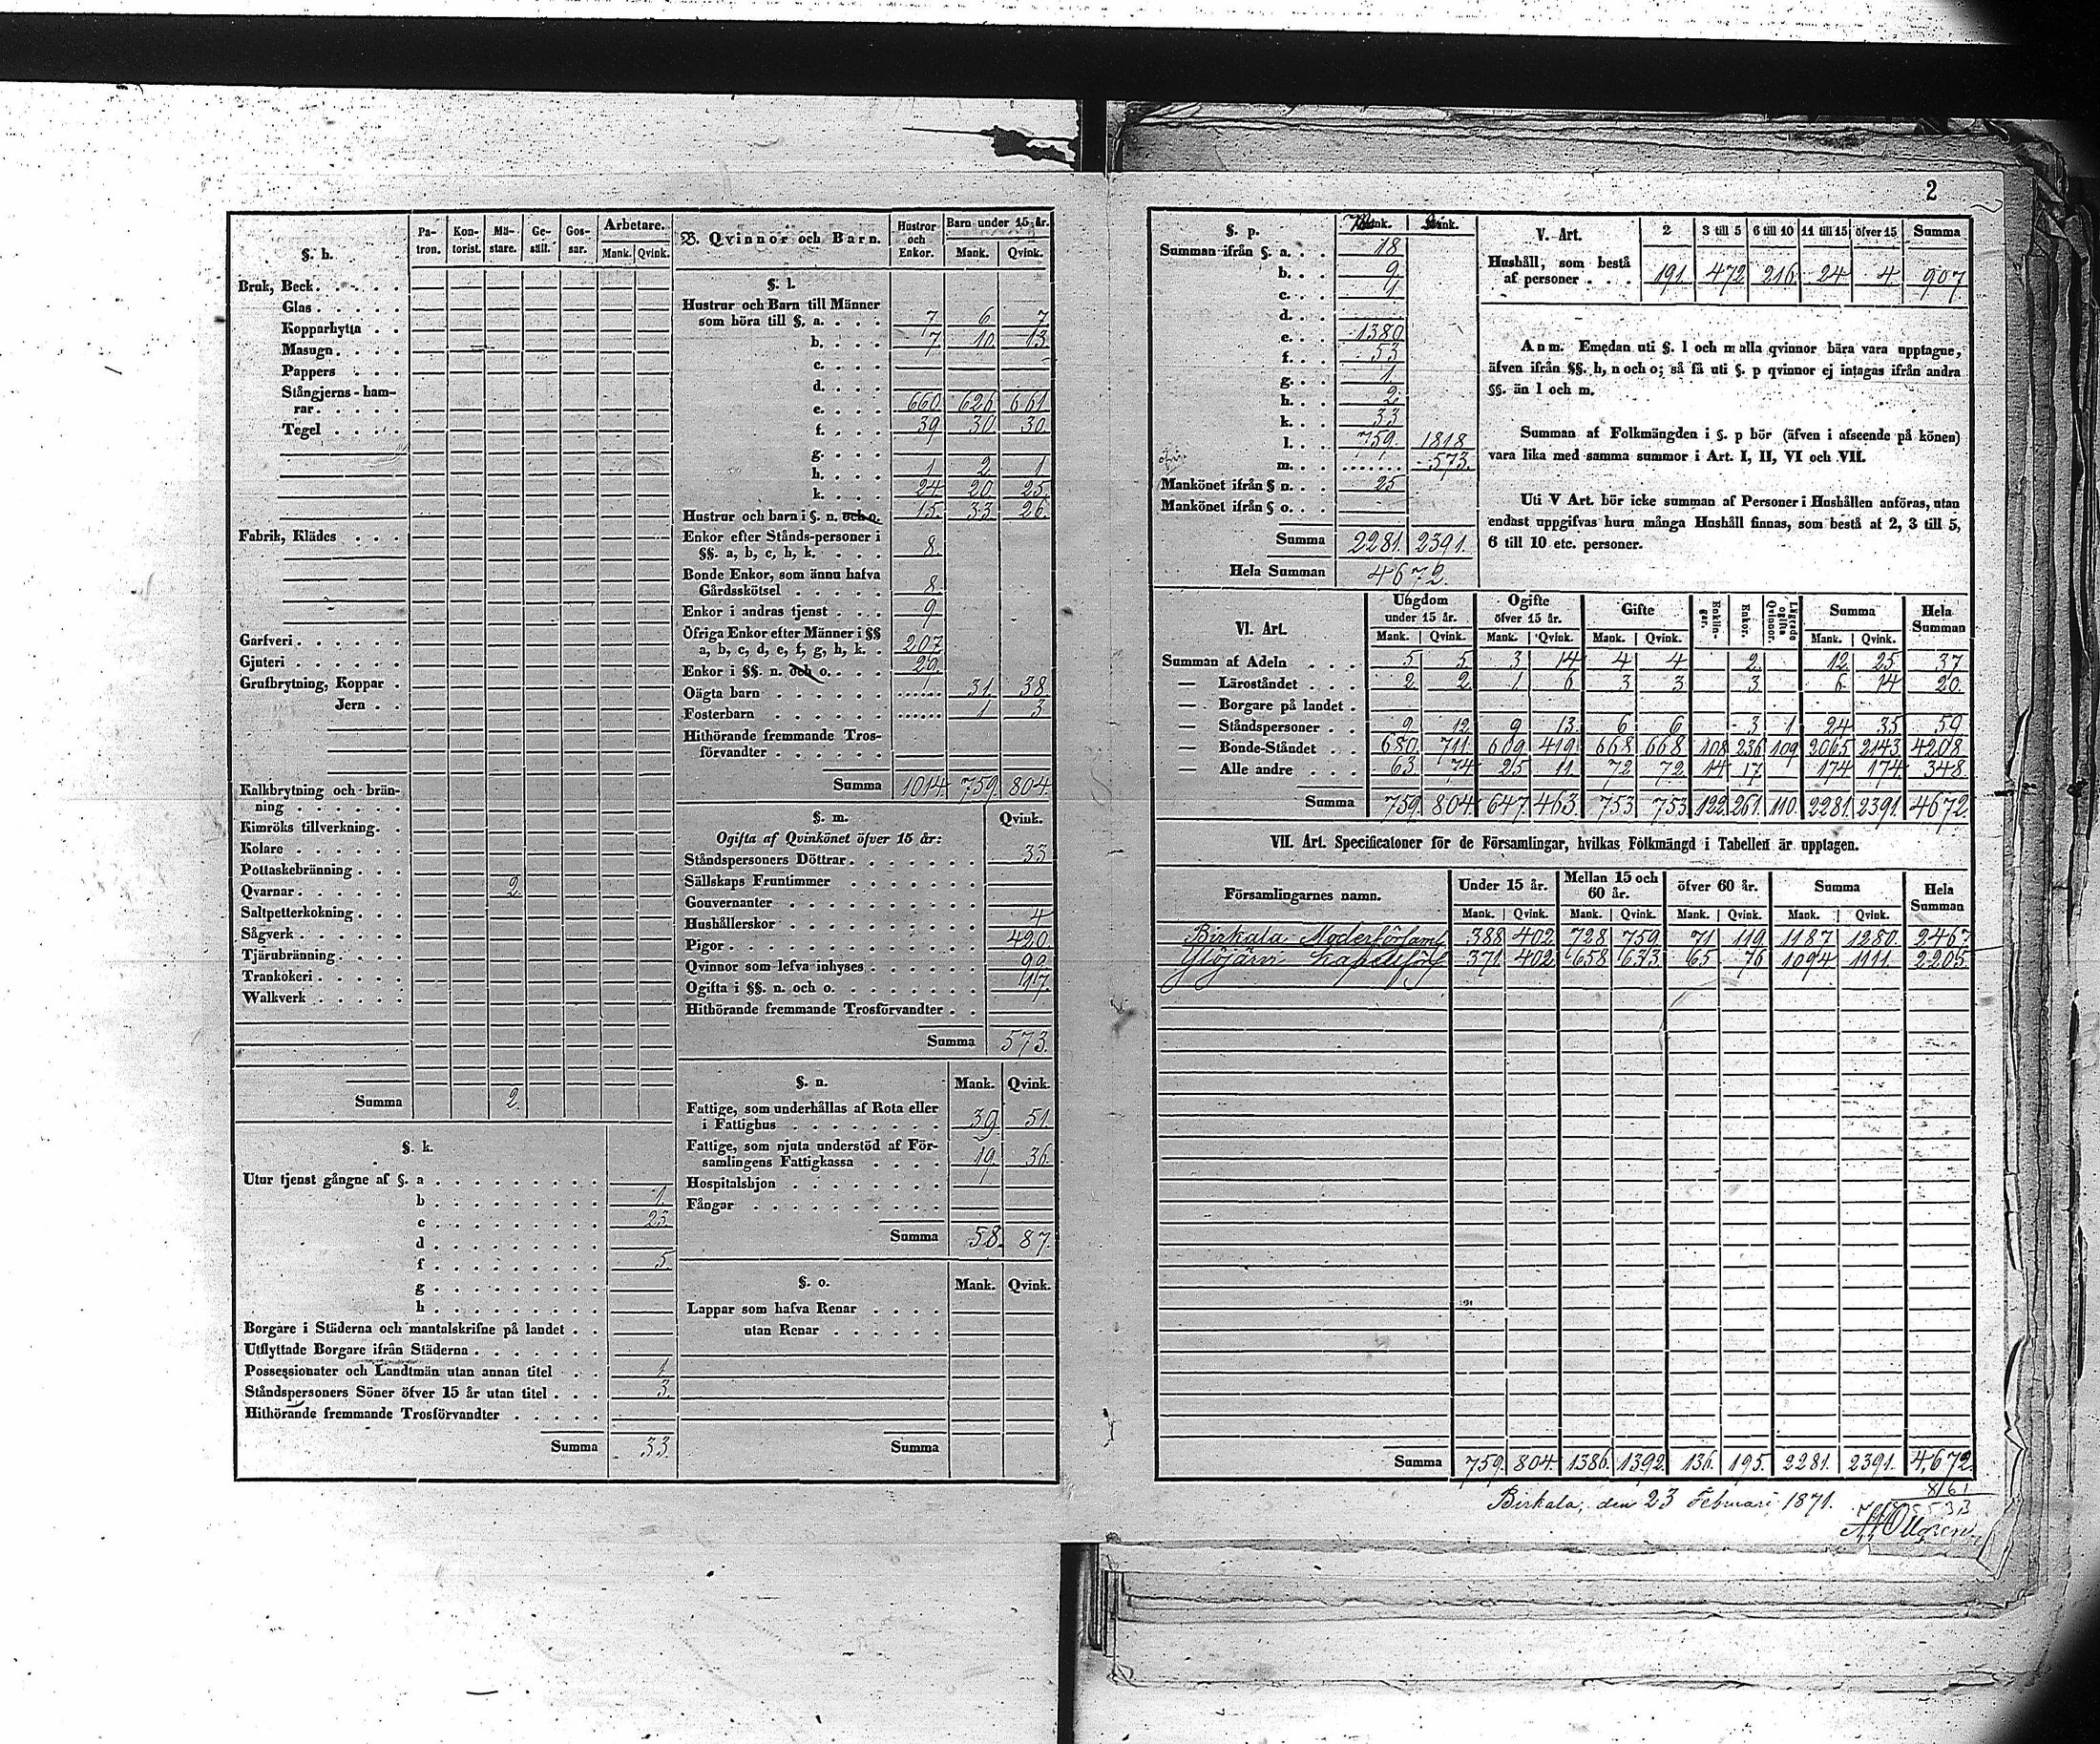 2
§. h. Pa-tron. Kon-torist. Mä-stare. Ge-säll. Gos-sar. Arbetare. Mank. Qvink.
Bruk, Beck
Glas
Kopparhytta
Masugn
Pappers
Stångjerns-ham-
rar
Tegel
Fabrik, Klädes
Garfveri
Gjuteri
Grufbrytning, Koppar
Jern
Kalkbrytning och brän-
ning
Kimröks tillverkning
Kolare
Pottaskebränning
Qvarnar 2
Saltpetterkokning
Sågverk
Tjärubränning
Trankokeri
Walkverk
Summa 2.
§. k.
Utur tjenst gångne af §. a
b 1.
e 23.
d
f 5.
g
h
Borgare i Städerna och mantalskrifne på landet
Utflyttade Borgare ifrån Städerna
Possessionater och Landtmän utan annan titel 1
Ståndspersoners Söner öfver 15 år utan titel 3.
Hithörande fremmande Trosförvandter
Summa 33.
B. Qvinnor och Barn. Hustror och Enkor. Barn under 15 år. Mank. Qvink.
§. l.
Hustrur och Barn till Männer
som höra till §. a. 7 6 7
b. 7 10 13
c.
d.
e. 660 626 661
f. 39 30 30
g.
h. 1 2 1
k. 24 20 25
Hustrur och barn i §. n. och o. 15. 33 26.
Enkor efter Stånds-personer i
§§. a, b, c, h, k. 8.
Bonde Enkor, som ännu hafva
Gårdsskötsel 8.
Enkor i andras tjenst 9
Öfriga Enkor efter Männer i §§
a, b, c, d, e, f, g, h, k. 207
Enkor i §§. n. och o. 29.
Oägta barn 31. 38
Fosterbarn 1 3
Hithörande fremmande Tros-
förvandter
Summa 1014. 759. 804.
§. m. Qvink.
Ogifta af Qvinkönet öfver 15 år:
Ståndspersoners Döttrar 33
Sällskaps Fruntimmer
Gouvernanter
Hushållerskor 4
Pigor 420.
Qvinnor som lefva inhyses 99
Ogifta i §§. n. och o. 17.
Hithörande fremmande Trosförvandter
Summa 573.
§. n. Mank. Qvink.
Fattige, som underhållas af Rota eller
i Fattighus 39. 51.
Fattige, som njuta understöd af För-
samlingens Fattigkassa 19. 36.
Hospitalshjon
Fångar
Summa 58. 87.
§. o. Mank. Qvink.
Lappar som hafva Renar
utan Renar
Summa
§. p. Mank. Qvink.
Summan ifrån §. a. 18
b. 9
c. 1
d.
e. 1380
f. 53
g. 1
h. 2
k. 33
l. 759. 1818
m. 573.
Mankönet ifrån § n. 25
Mankönet ifrån § o.
Summa 2281. 2391.
Hela Summan 4672.
V. Art. 2 3 till 5 6 till 10 11 till 15 öfver 15 Summa
Hushåll, som bestå
af personer 191. 472 216. 24 4. 907
Anm. Emedan uti §. l och m alla qvinnor bära vara upptagne,
äfven ifrån §§. h, n och o; så få uti §. p qvinnor ej intagas ifrån andra
§§. än l och m.
Summan af Folkmängden i §. p bör (äfven i afseende på könen)
vara lika med samma summor i Art. I, II, VI och VII.
Uti V Art. bör icke summan af Personer i Hushållen anföras, utan
endast uppgifvas huru många Hushåll finnas, som bestå af 2, 3 till 5,
6 till 10 etc. personer.
VI. Art. Ungdom under 15 år. Ogifte öfver 15 år. Gifte Enklin-gar. Enkor. Lägrade ogifta Qvinnor. Summa Hela Summan
Mank. Qvink. Mank. Qvink. Mank. Qvink. Mank. Qvink.
Summan af Adeln 5 5 3 14 4 4 2 12 25 37
— Läroståndet 2 2 1 6 3 3 3 6 14 20.
— Borgare på landet
— Ståndspersoner 9 12 9 13. 6 6 3 1 24 35 59
— Bonde-Ståndet 680 711 609 419 668 668 108 236 109 2065 2143 4208
— Alle andre 63 74 25 11 72 72 14 17 174 174 348
Summa 759. 804. 647. 463. 753 753 122. 261. 110. 2281. 2391. 4672.
VII. Art. Specificatoner för de Församlingar, hvilkas Folkmängd i Tabellen är upptagen.
Församlingarnes namn. Under 15 år. Mellan 15 och 60 år. öfver 60 år. Summa Hela Summan
Mank. Qvink. Mank. Qvink. Mank. Qvink. Mank. Qvink.
Birkala Moderförsaml 388 402 728 759 71 119 1187 1280. 2467
Ylöjärvi Kapellförs 371 402 658 633 65 76 1094 1111. 2205.
Summa 759. 804. 1386. 1392. 136. 195. 2281. 2391. 4,672.
Birkala, den 23 Februari 1871.